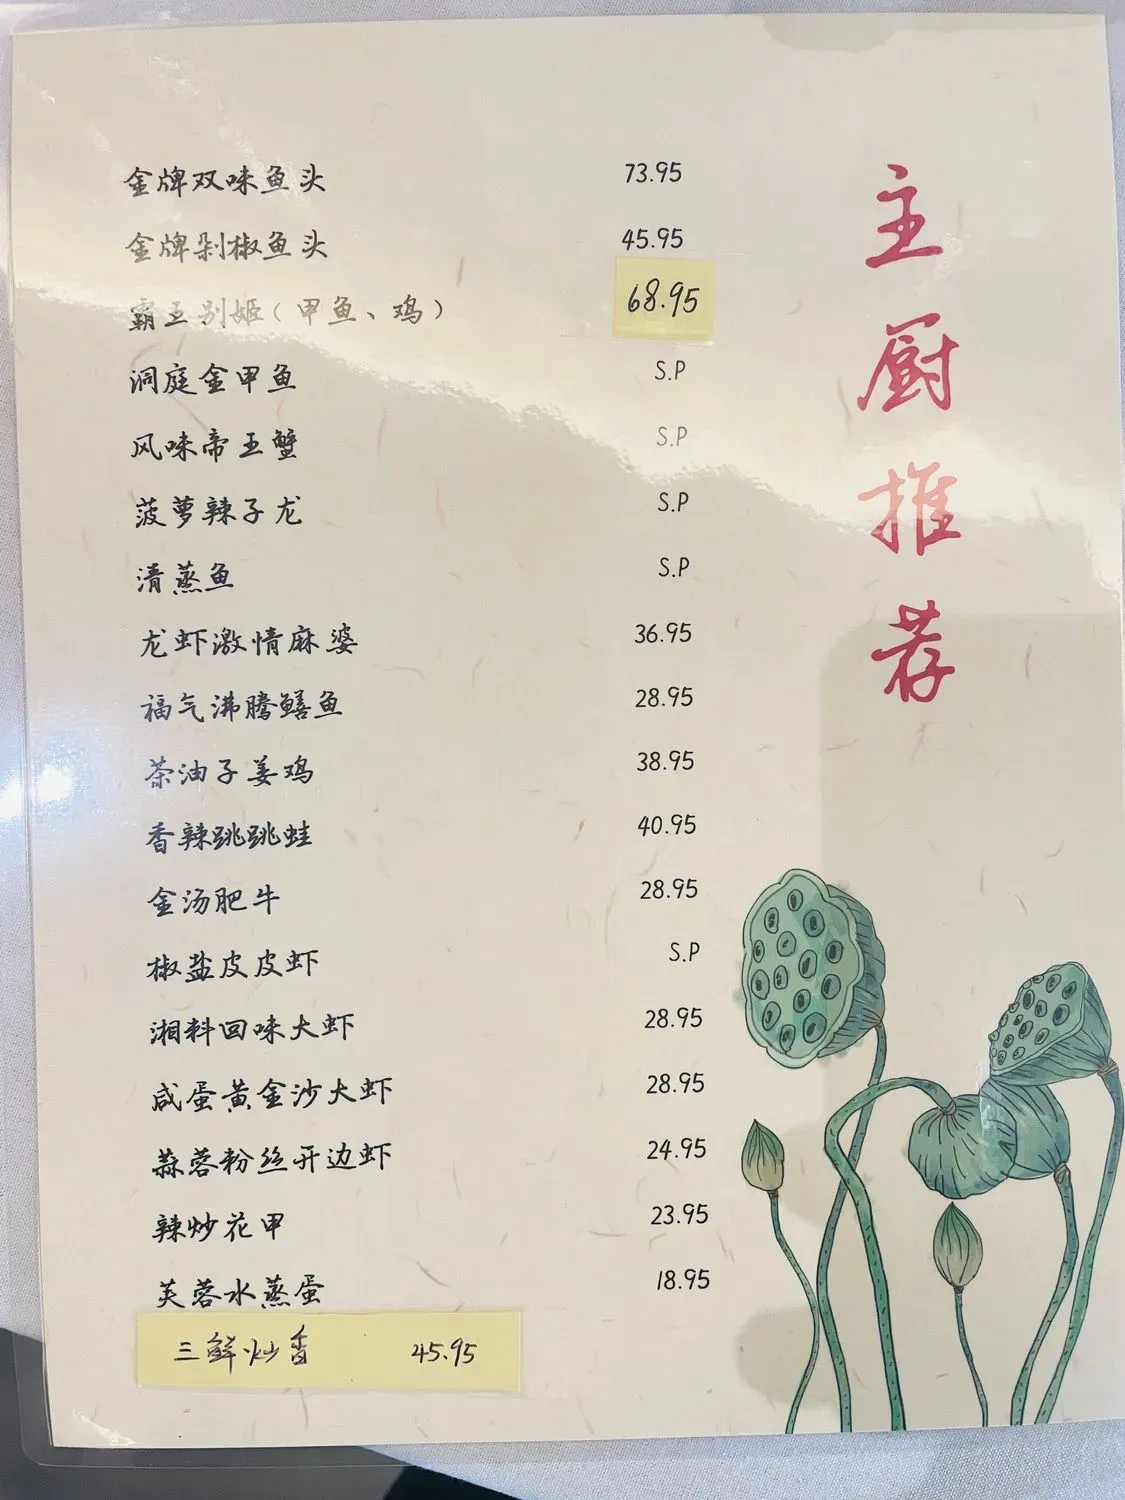 主厨推荐
金牌双味鱼头 73.95
金牌剁椒鱼头 45.95
霸王别姬（甲鱼、鸡） 68.95
洞庭金甲鱼 S.P
风味帝王蟹 S.P
菠萝辣子龙 S.P
清蒸鱼 S.P
龙虾激情麻婆 36.95
福气沸腾鳝鱼 28.95
茶油子姜鸡 38.95
香辣跳跳蛙 40.95
金汤肥牛 28.95
椒盐皮皮虾 S.P
湘料回味大虾 28.95
咸蛋黄金沙大虾 28.95
蒜蓉粉丝开边虾 24.95
辣炒花甲 23.95
芙蓉水蒸蛋 18.95
三鲜炒香 45.95